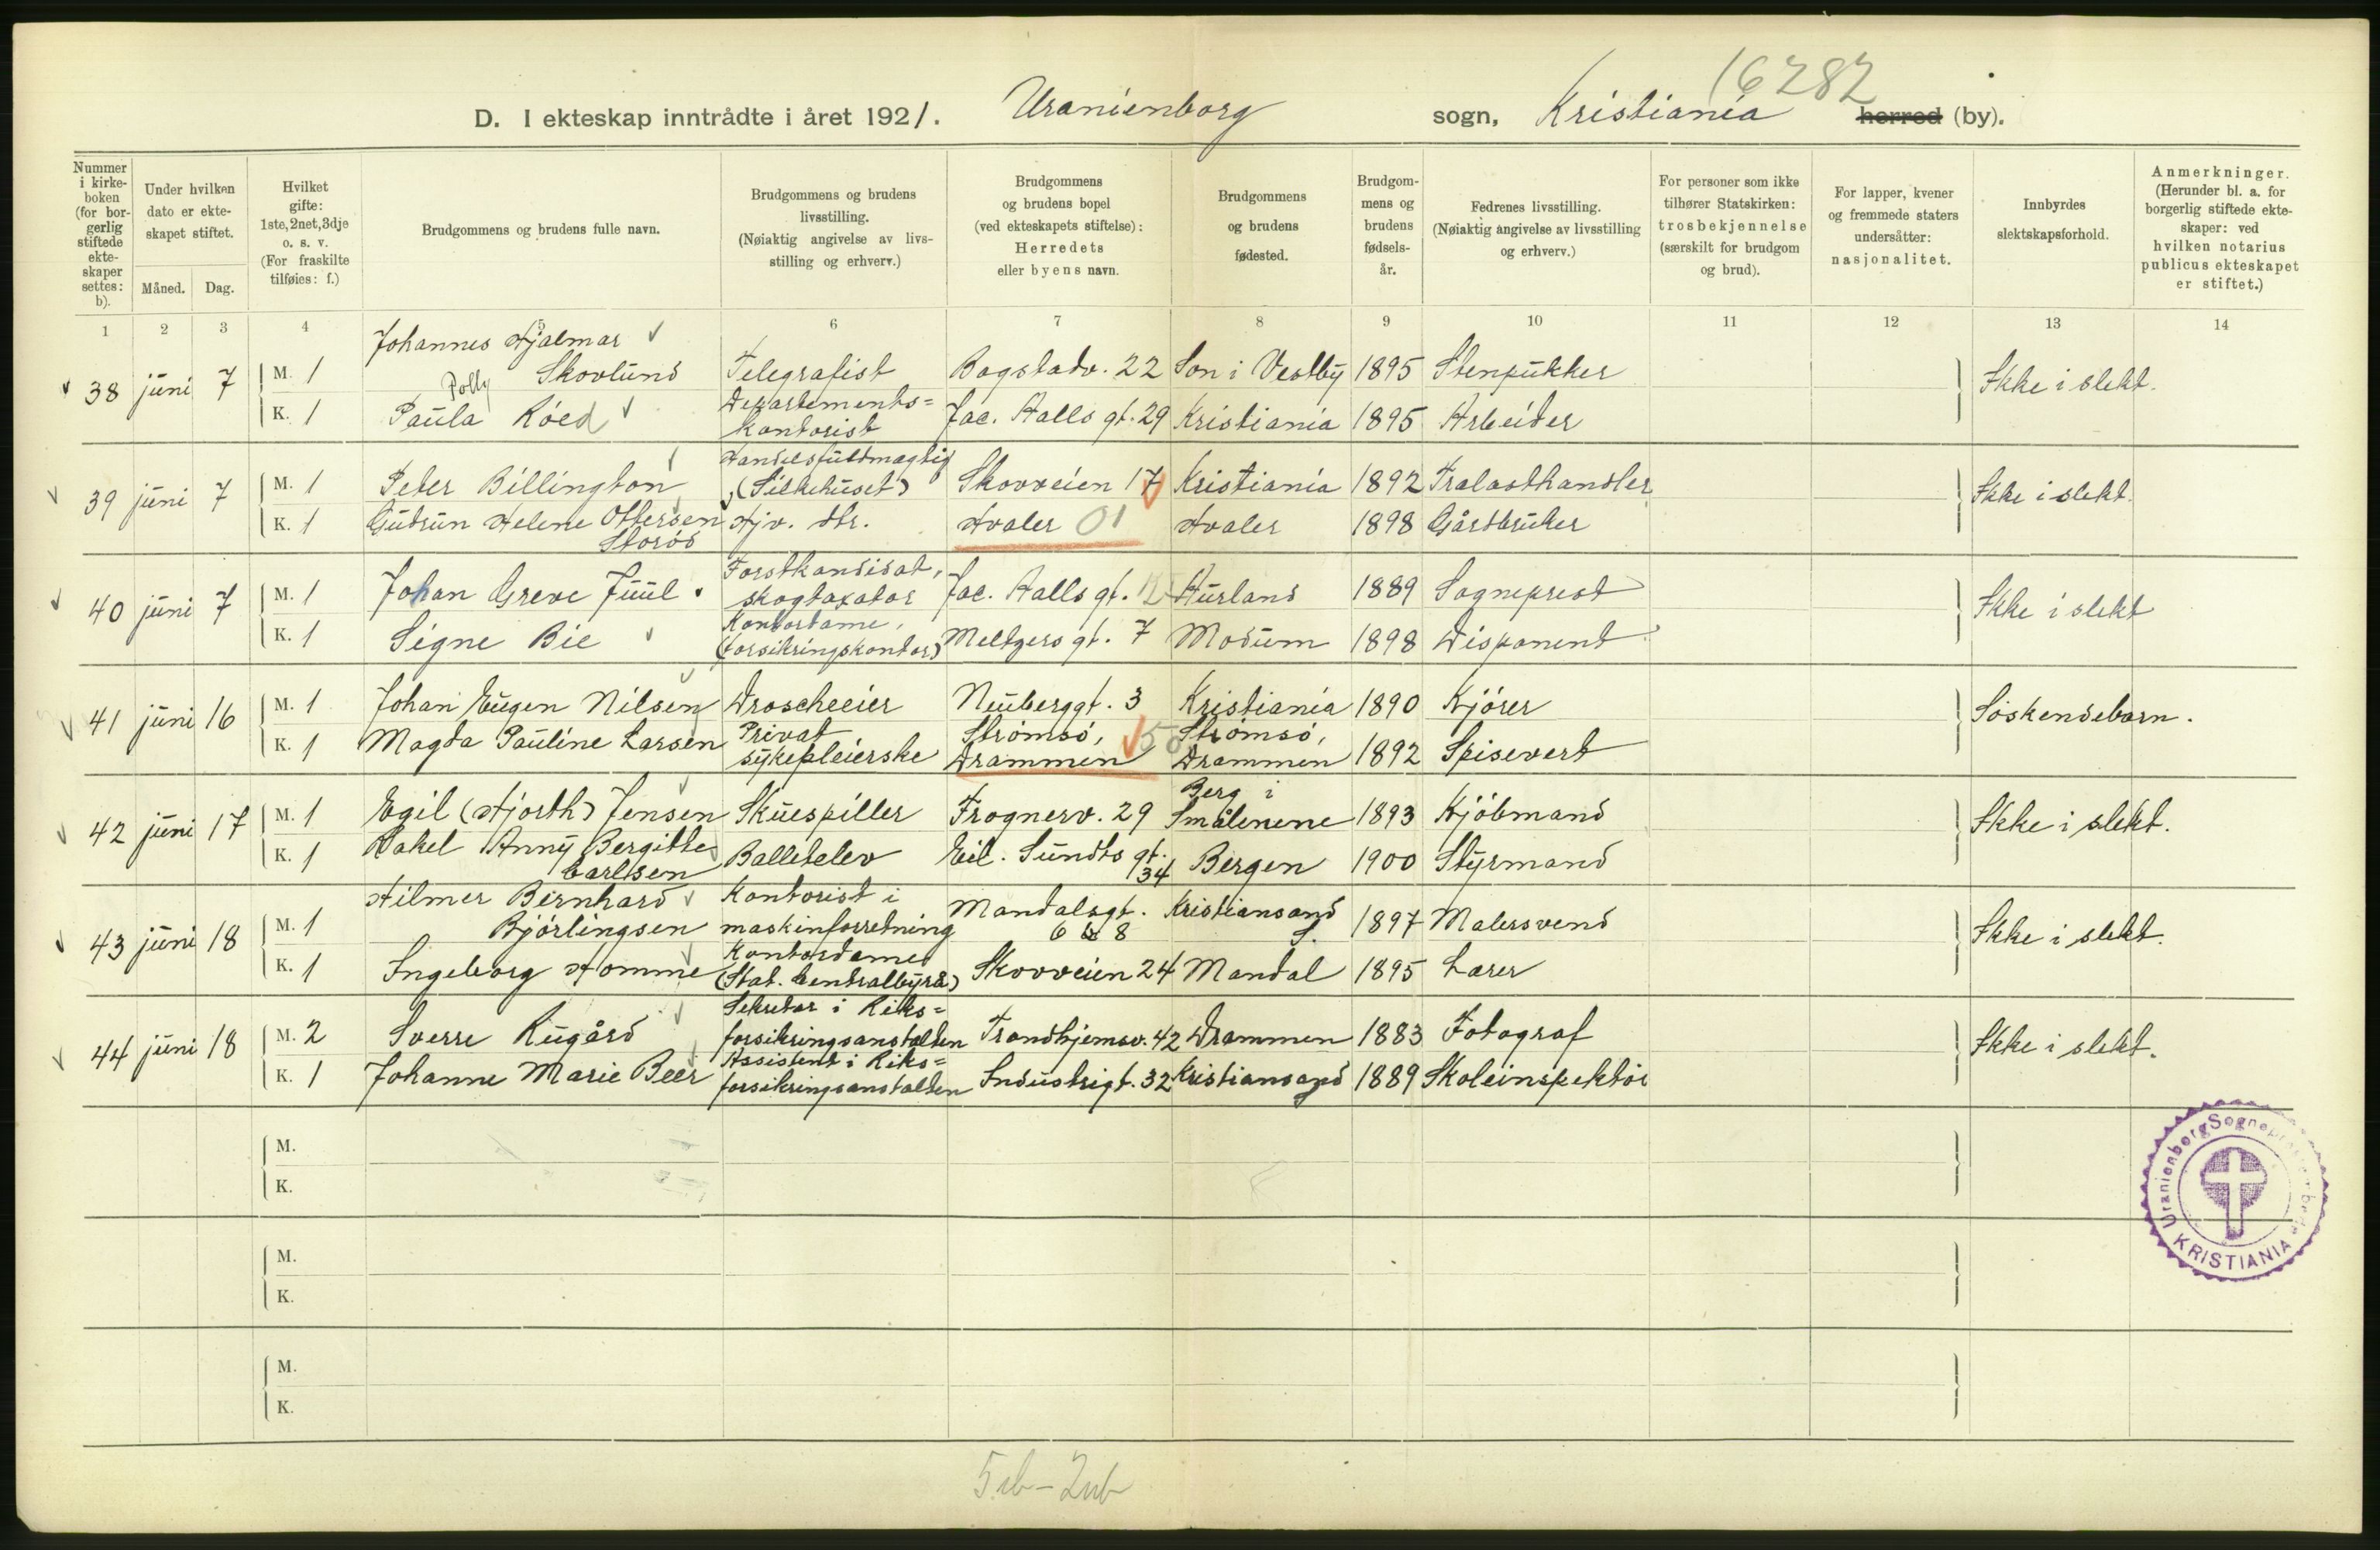 16282
D. I ekteskap inntrådte i året 1921. Uranienborg sogn, Kristiania herred (by).
Nummer i kirkeboken (for borgerlig stiftede ekteskaper settes: b).
Under hvilken dato er ekteskapet stiftet.
Måned. Dag.
Hvilket gifte: 1ste, 2net, 3dje o. s. v. (For fraskilte tilføies: f.)
Brudgommens og brudens fulle navn.
Brudgommens og brudens livsstilling. (Nøiaktig angivelse av livsstilling og erhverv.)
Brudgommens og brudens bopel (ved ekteskapets stiftelse): Herredets eller byens navn.
Brudgommens og brudens fødested.
Brudgommens og brudens fødselsår.
Fedrenes livsstilling. (Nøiaktig angivelse av livsstilling og erhverv.)
For personer som ikke tilhører Statskirken: trosbekjennelse (særskilt for brudgom og brud).
For lapper, kvener og fremmede staters undersåtter: nasjonalitet.
Innbyrdes slektskapsforhold.
Anmerkninger. (Herunder bl. a. for borgerlig stiftede ekteskaper: ved hvilken notarius publicus ekteskapet er stiftet.)
1 2 3 4 5 6 7 8 9 10 11 12 13 14
38 juni 7 M. 1 Johannes Hjalmar Skovlund Telegrafist Bogstadv. 22 Son i Vestby 1895 Stenpukker Ikke i slekt.
K. 1 Polly Paula Róed Departements=kontorist Jac. Aalls gt. 29 Kristiania 1895 Arbeider
39 juni 7 M. 1 Peter Billington Handelsfuldmægtig (Silkehuset) Skovveien 17 Kristiania 1892 Trælasthandler Ikke i slekt.
K. 1 Gudrun Helene Ottersen Storód Hjv. dtr. Hvaler 01 Hvaler 1898 Gårdbruker
40 juni 7 M. 1 Johan Greve Juul Forstkandidat, skogtaxator Jac. Aalls gt. Aurland 1889 Sogneprest Ikke i slekt
K. 1 Signe Bie Kontordame, (forsikringskontor) Meltzers gt. 7 Modum 1898 Disponent
41 juni 16 M. 1 Johan Eugen Nilsen Droscheeier Neuberggt. 3 Kristiania 1890 Kjórer Sóskendebarn.
K. 1 Magda Pauline Larsen Privat sykepleierske Strómsó, Drammen Strómsó, Drammen 1892 Spisevert
42 juni 17 M. 1 Egil (Hjorth) Jensen Skuespiller Frognerv. 29 Berg i Smålenene 1893 Kjóbmand Ikke i slekt.
K. 1 Rakel Anny Bergitte Carlsen Balletelev Eil. Sundts gt. 34 Bergen 1900 Styrmand
43 juni 18 M. 1 Hilmer Bernhard Bjórlingsen Kontorist i maskinforretning Mandalsgt. 6 8 Kristiansand S. 1897 Malersvend Ikke i slekt.
K. 1 Ingeborg Homme Kontordame (Stat. Centralbyrå) Skovveien 24 Mandal 1895 Lærer
44 juni 18 M. 2 Sverre Rugård Sekretær i Riks=forsikringsanstalten Trondhjemsv. 42 Drammen 1883 Fotograf Ikke i slekt.
K. 1 Johanne Marie Beer Assistent i Riks=forsikringsanstalten Industrigt. 32 Kristiansand 1889 Skoleinspektór
M.
K.
M.
K.
M.
K.
Uranienborg Sogneprestembede
KRISTIANIA